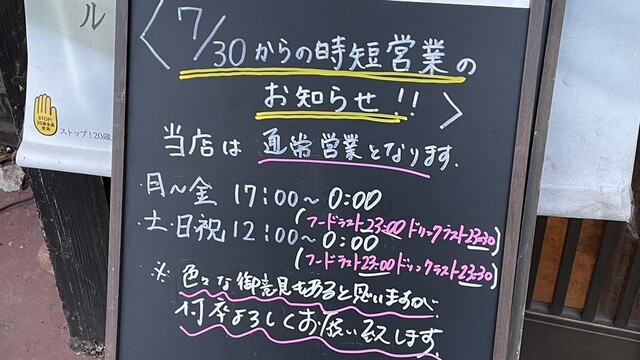 ル
STOP!
ストップ!20歳
〈7/30からの時短営業の
お知らせ!!〉
当店は 通常営業となります.
・月〜金 17:00〜0:00
(フードラスト23:00 ドリンクラスト23:30)
・土・日・祝 12:00〜0:00
(フードラスト23:00 ドリンクラスト23:30)
※ 色々な御意見もあると思いますが
何卒よろしくお願い致します